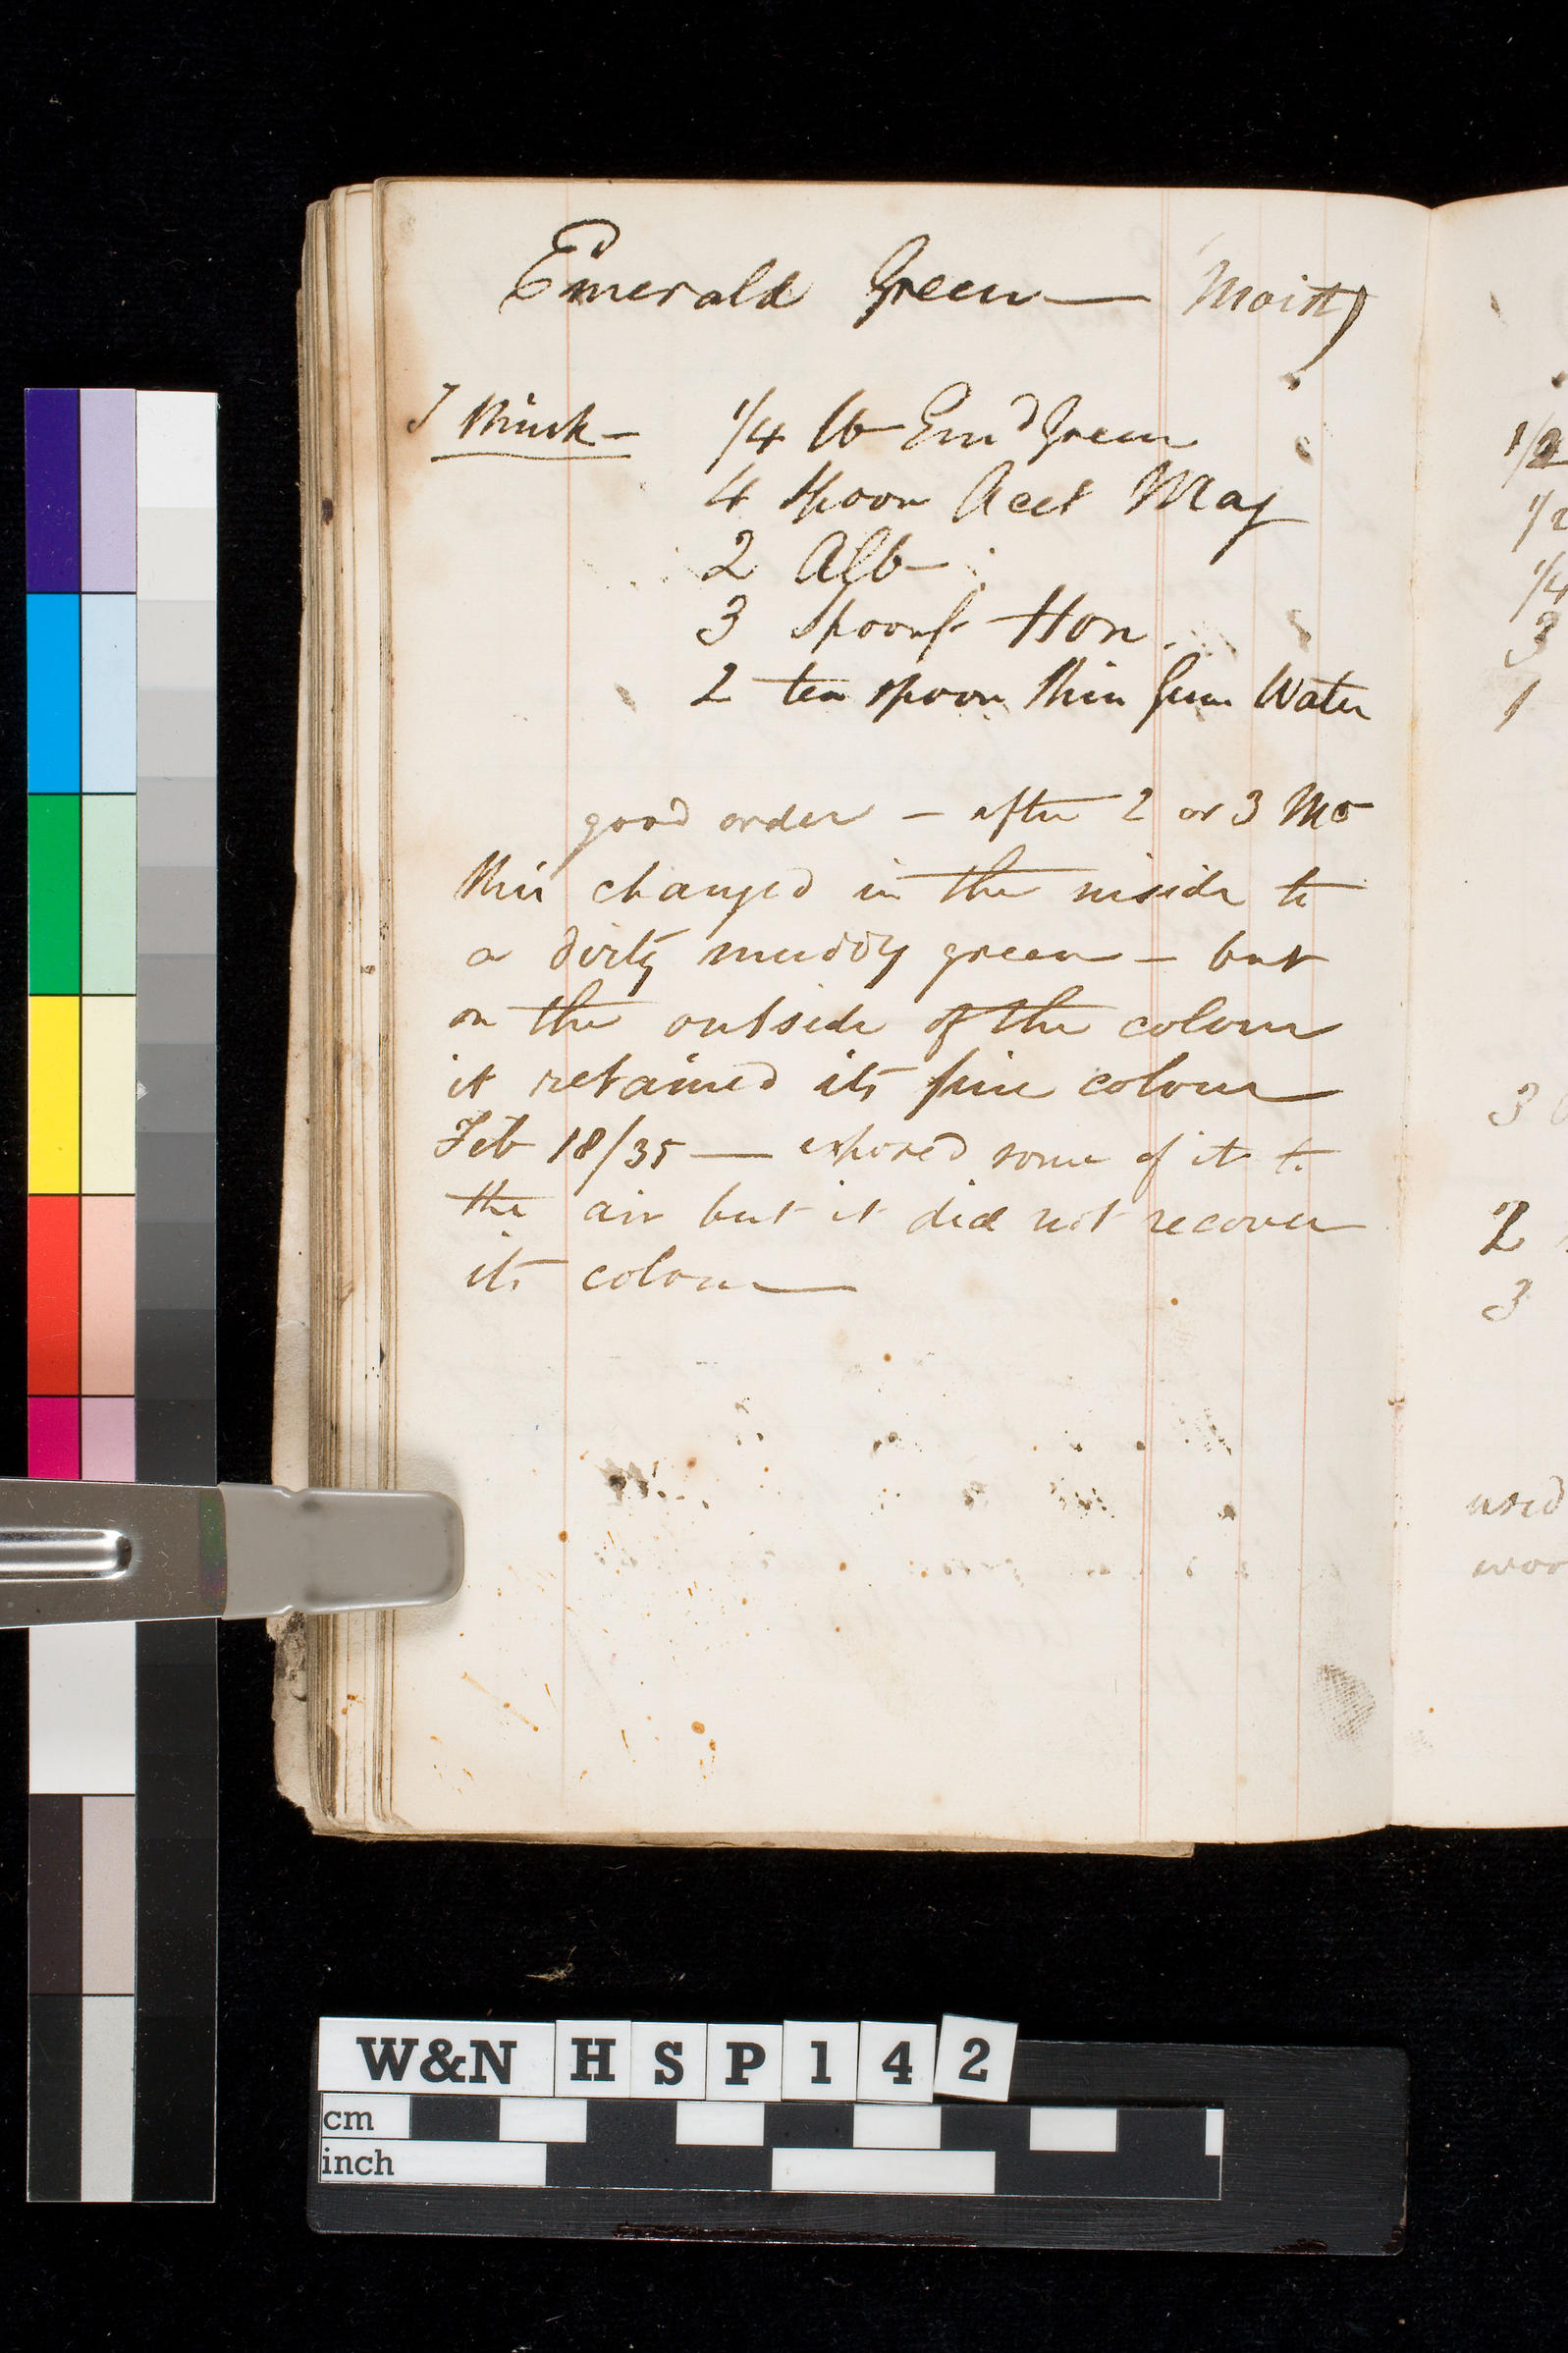 Emerald Green — Moist)
I think — 1/4 lb Emd Green
4 spoon Acet Mag
2 Alb —
3 spoonf Hon.
2 tea spoon thin Gum Water
good order — after 2 or 3 Mo
this changed in the inside to
a dirty muddy green — but
on the outside of the colour
it retained its fine colour
Feb 18/35 — exposed some of it to
the air but it did not recover
its colour —
1/2
1/2
1/4
3
1
3
2
3
used
W&N H S P 1 4 2
cm
inch